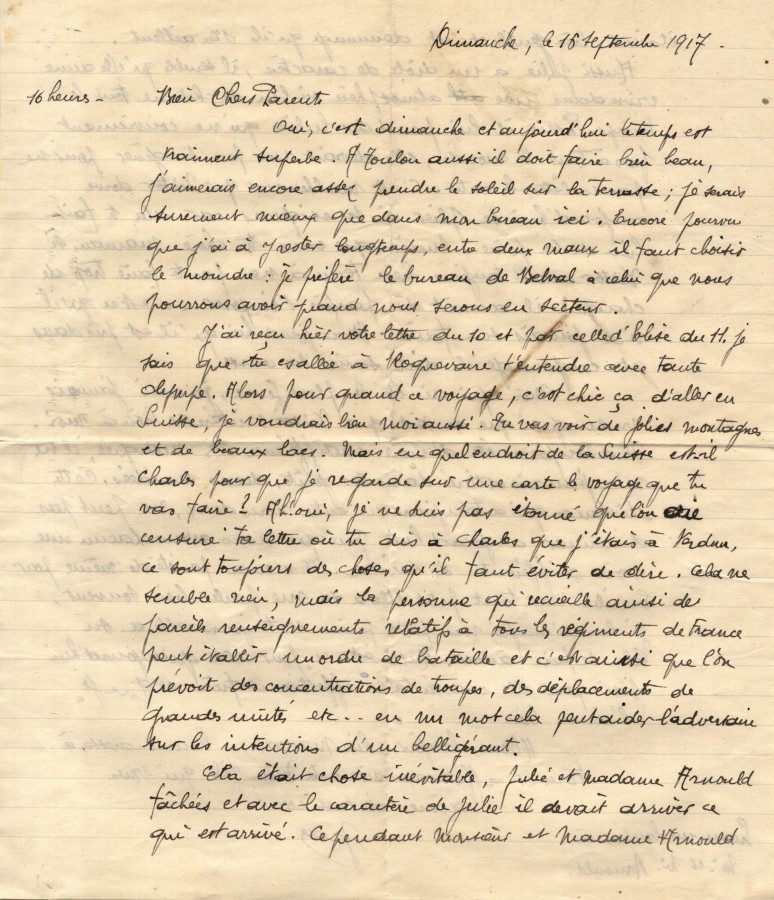 Dimanche, le 16 septembre 1917.
16 heures - Bien Chers Parents
Oui, c'est dimanche et aujourd'hui le temps est
vraiment superbe. A Toulon aussi il doit faire bien beau,
j'aimerais encore assez prendre le soleil sur la terrasse ; je serais
surement mieux que dans mon bureau ici. Encore pourvu
que j'ai à y rester longtemps, entre deux maux il faut choisir
le moindre : je préfère le bureau de Belval à celui que nous
pourrons avoir quand nous serons en secteur.
J'ai reçu hier votre lettre du 10 et par celle d' du 11. je
sais que tu es allée à Roquevaire t'entendre avec tante
Olympe. Alors pour quand ce voyage, c'est chic ça d'aller en
Suisse, je voudrais bien moi aussi. Tu vas voir de jolies montagnes
et de beaux lacs. Mais en quel endroit de la Suisse est-il
Charles pour que je regarde sur une carte le voyage que tu
vas faire ? Ah! oui, je ne suis pas étonné que l'on aie
censuré ta lettre où tu dis à Charles que j'étais à Verdun,
ce sont toujours des choses qu'il faut éviter de dire. Cela ne
semble rien, mais la personne qui recueille ainsi de
pareils renseignements relatifs à tous les régiments de France
peut établir un ordre de bataille et c'est ainsi que l'on
prévoit des concentrations de troupes, des déplacements de
grandes unités etc... en un mot cela peut aider l'adversaire
sur les intentions d'un belligérant.
Cela était chose inévitable, Julie et Madame Arnould
fâchées et avec le caractère de Julie il devait arriver ce
qui est arrivé. Cependant Monsieur et Madame Arnould